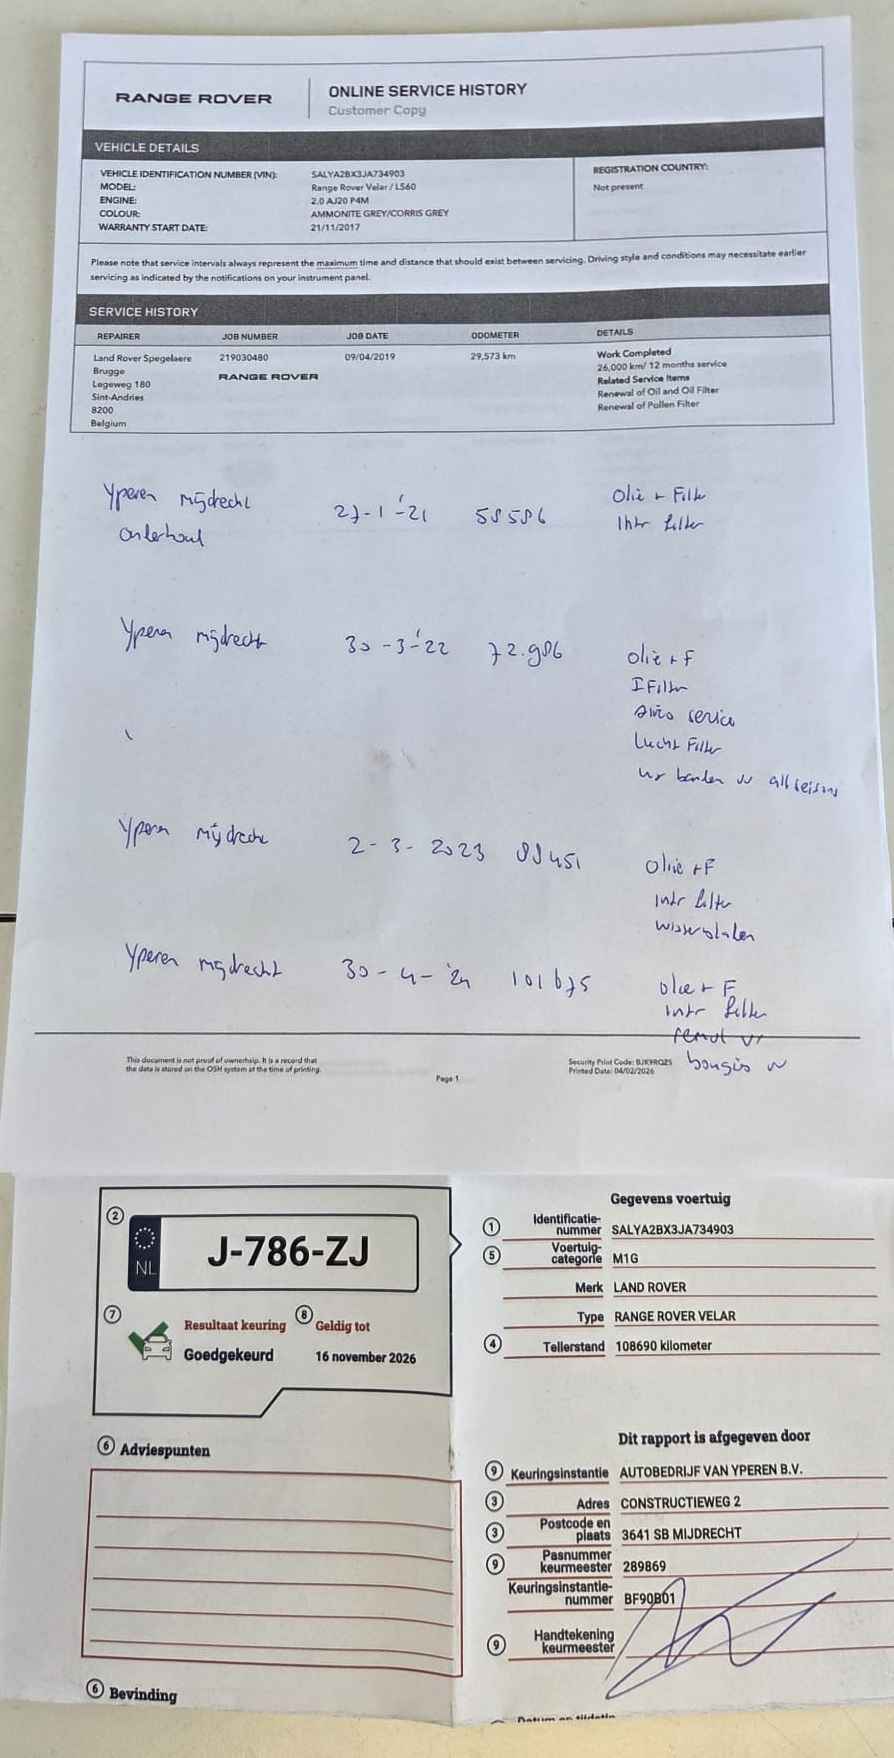 RANGE ROVER
ONLINE SERVICE HISTORY
Customer Copy
VEHICLE DETAILS
VEHICLE IDENTIFICATION NUMBER (VIN): SALYA2BX3JA734903
MODEL: Range Rover Velar / L560
ENGINE: 2.0 AJ20 P4M
COLOUR: AMMONITE GREY/CORRIS GREY
WARRANTY START DATE: 21/11/2017
REGISTRATION COUNTRY:
Not present
Please note that service intervals always represent the maximum time and distance that should exist between servicing. Driving style and conditions may necessitate earlier
servicing as indicated by the notifications on your instrument panel.
SERVICE HISTORY
REPAIRER JOB NUMBER JOB DATE ODOMETER DETAILS
Land Rover Spegelaere 219030480 09/04/2019 29,573 km Work Completed
Brugge RANGE ROVER 26,000 km/ 12 months service
Legeweg 180 Related Service Items
Sint-Andries Renewal of Oil and Oil Filter
8200 Renewal of Pollen Filter
Belgium
Yperen mijdrecht 27-1-'21 58586 Olie + Filter
onderhoud Intr filter
Yperen mijdrecht 30-3-'22 72.986 olie + F
I Filter
airco service
Lucht Filter
banden vv all seisons
Yperen mijdrecht 2-3-2023 88451 olie + F
intr filter
wisserbladen
Yperen mijdrecht 30-4-'24 101675 olie + F
intr filter
bougies vv
This document is not proof of ownership. It is a record that
the data is stored on the OSH system at the time of printing.
Page 1
Security Print Code: 
Printed Date: 04/02/2026
2
NL
J-786-ZJ
7 Resultaat keuring 8 Geldig tot
Goedgekeurd 16 november 2026
6 Adviespunten
6 Bevinding
Gegevens voertuig
1 Identificatie-
nummer SALYA2BX3JA734903
5 Voertuig-
categorie M1G
Merk LAND ROVER
Type RANGE ROVER VELAR
4 Tellerstand 108690 kilometer
Dit rapport is afgegeven door
9 Keuringsinstantie AUTOBEDRIJF VAN YPEREN B.V.
3 Adres CONSTRUCTIEWEG 2
3 Postcode en
plaats 3641 SB MIJDRECHT
9 Pasnummer
keurmeester 289869
Keuringsinstantie-
nummer BF90B01
9 Handtekening
keurmeester